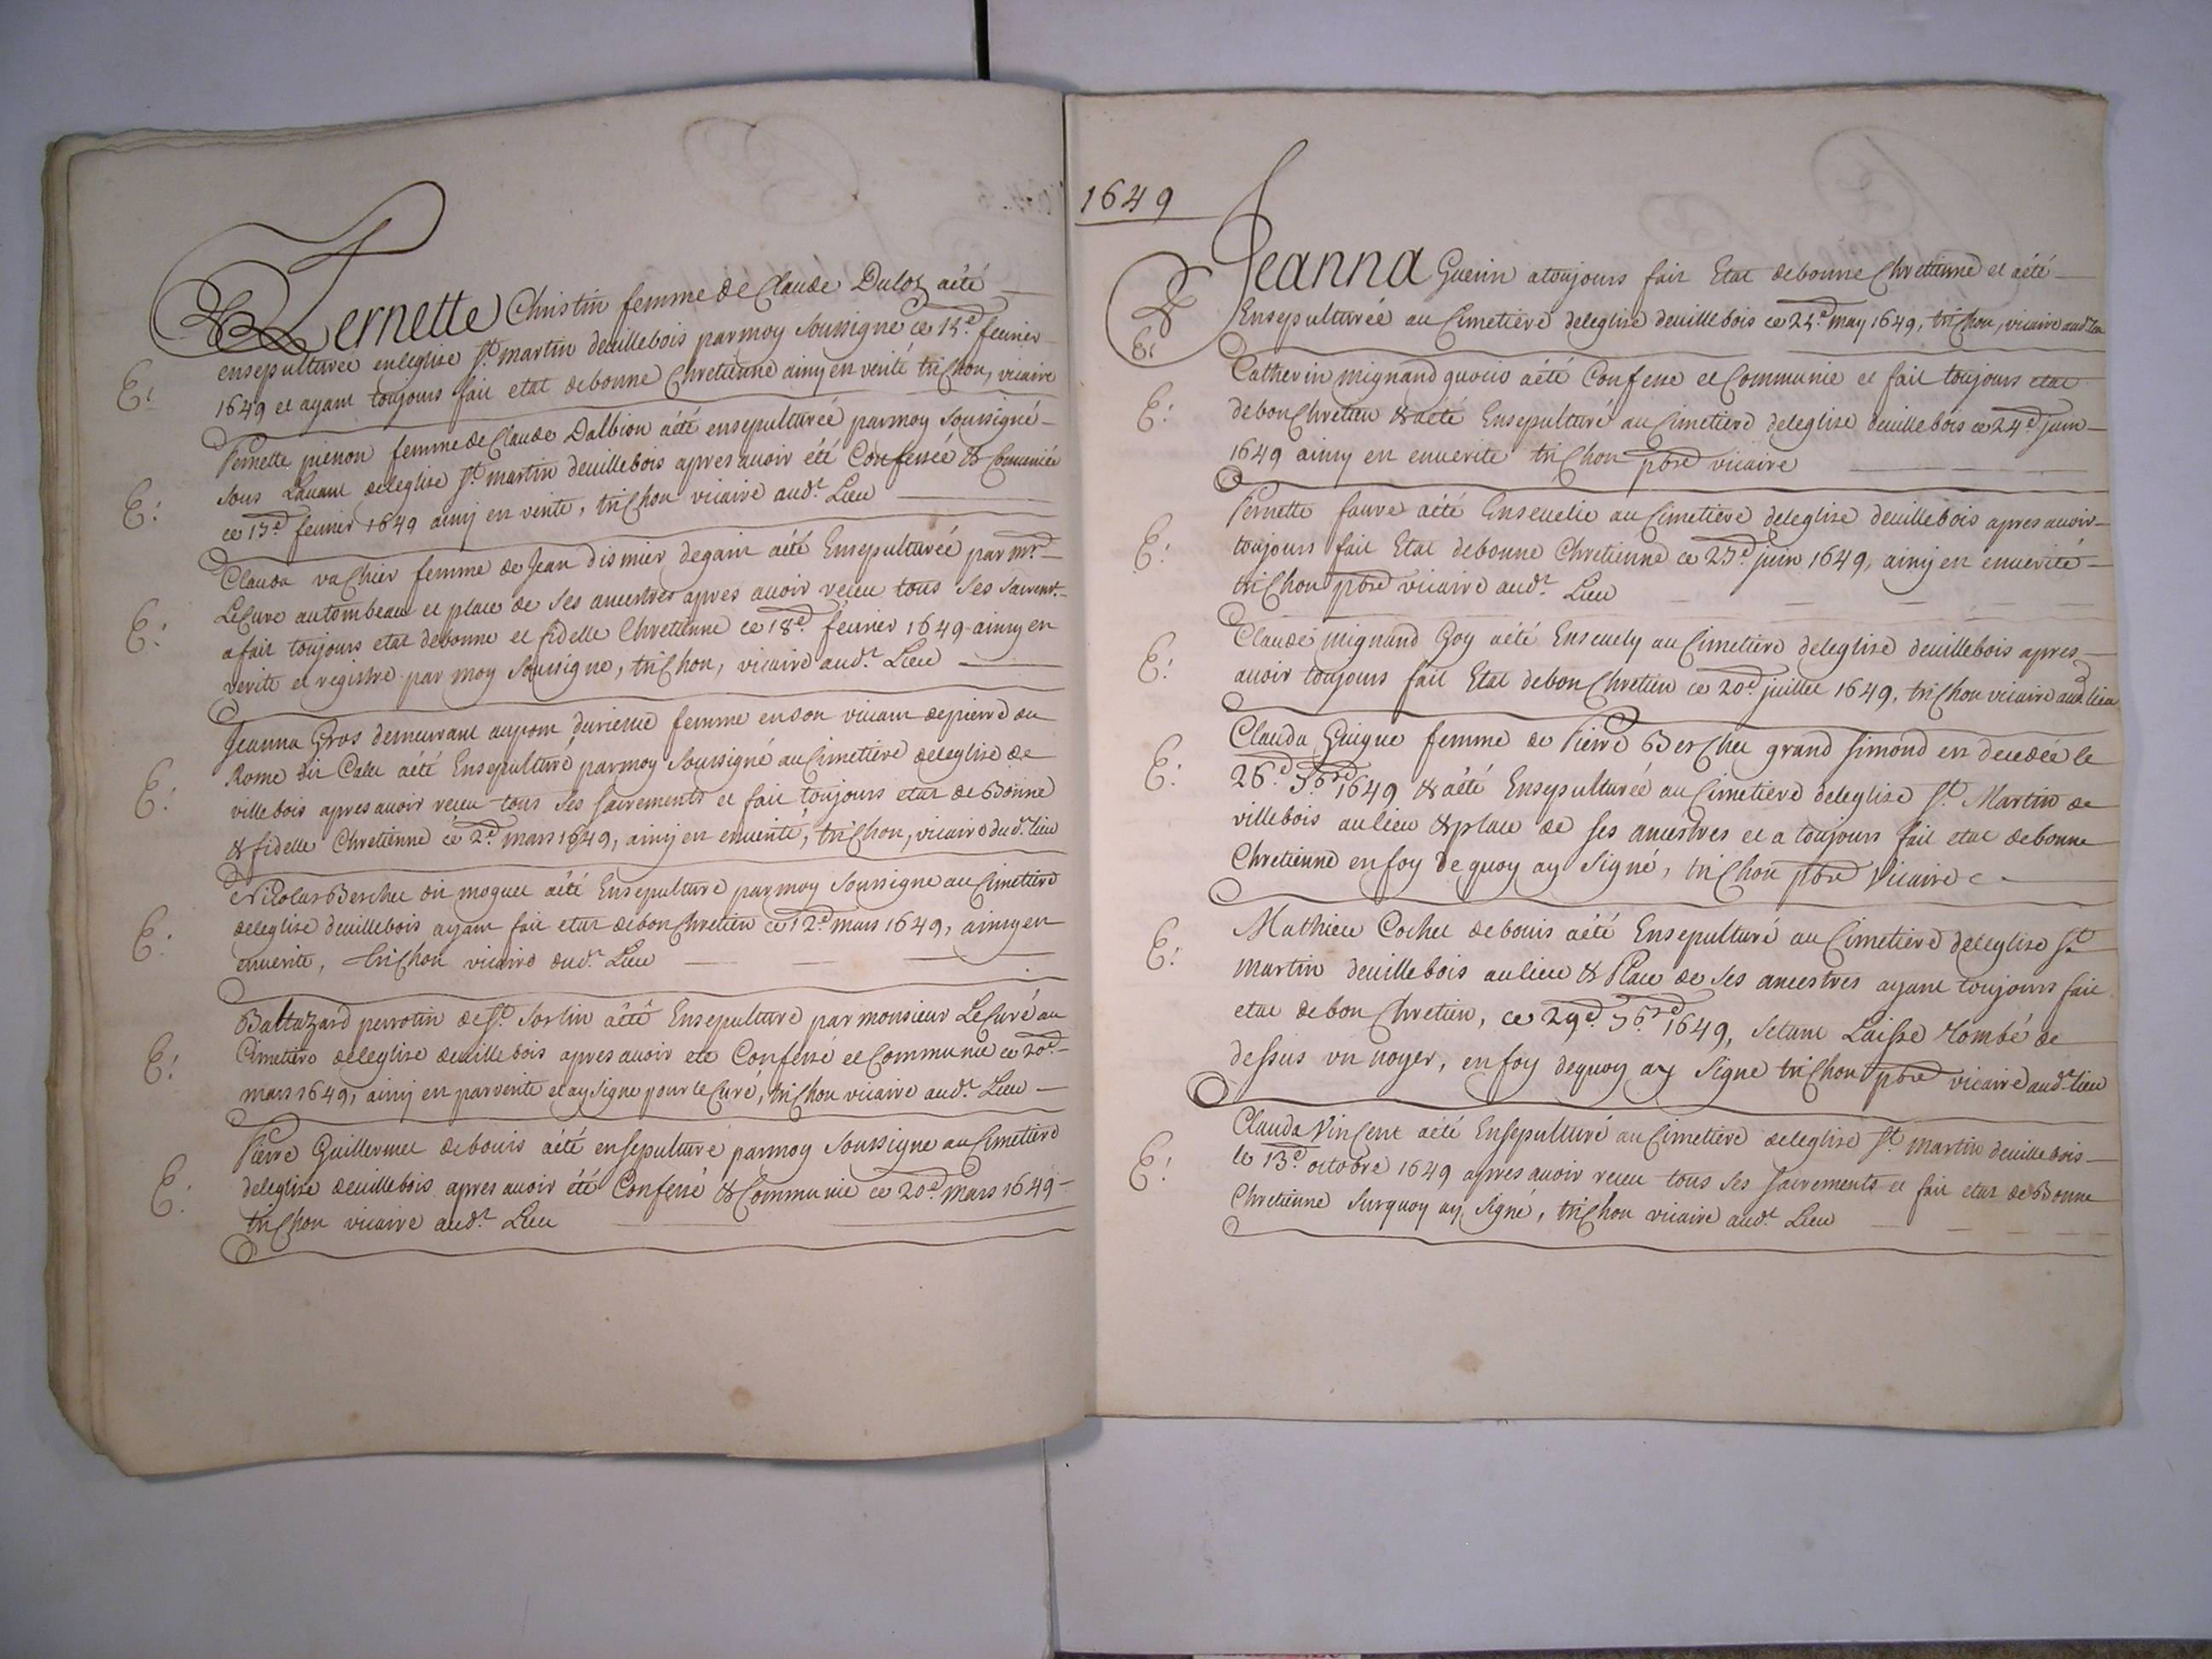 Pernette Christin femme de Claude Duloz aété
ensepulturée en leglise St. martin deuillebois parmoy soussigne ce 15e. feurier
E: 1649 et ayant toujours fait etat debonne Chretienne ainsy en verité trichon, vicaire
Pernette pienon femme de Claude Dalbion aété ensepulturéé parmoy soussigné
E: sous Lauant deleglise St. martin deuillebois apres auoir été Confessée & Comuniée
ce 15e. feurier 1649 ainsy en verite, trichon vicaire aud.t Lieu
Clauda vachier femme de Jean dismier degain aété Ensepulturéé par mr.
E: Le Cure autombeau et place de ses ancestres apres auoir receu tous ses sacremt.
afait toujours etat debonne et fidelle Chretienne ce 18e. feurier 1649 ainsy en
verite et registre par moy soussigne, trichon, vicaire aud.t Lieu
Jeanna Gros demeurant aupont femme enson viuant depierre du
Rome dit Calet aété Ensepulturé parmoy soussigné au Cimetiere deleglise de
E: villebois apres auoir receu tous ses sacrements et fait toujours etat de Bonne
& fidelle Chretienne ce 2e. mars 1649, ainsy en enuerité, trichon, vicaire dud.t lieu
Nicolas Berchet dit moguet aété Ensepulture parmoy soussigne au Cimetiere
E: deleglise deuillebois ayant fait etat debon Chretien ce 12e. mars 1649, ainsy en
enuerite, trichon vicaire dud.t Lieu
Baltazard perrotin de St. sorlin aété Ensepulture par monsieur Le Curé au
E: Cimetiere deleglise deuillebois apres auoir ete Confessé et Communie ce 20e.
mars 1649, ainsy en par verite et ay signe pour le Curé, trichon vicaire aud.t Lieu
Pierre Guillermet debouis aété ensepulturé parmoy soussigne au Cimetiere
E: deleglise deuillebois apres auoir été Confessé & Communie ce 20e. mars 1649
trichon vicaire aud.t Lieu
1649
Jeanna Guerin atoujours fait Etat debonne Chretienne et aété
E: Ensepulturéé au Cimetiere deleglise deuillebois ce 24e. may 1649, trichon, vicaire aud.t Lieu
Catherin mignand aété Confesse et Communie et fait toujours etat
E: debon Chretien & aété Ensepulturé au Cimetiere deleglise deuillebois ce 24e. juin
1649 ainsy en enuerite trichon pbre vicaire
Pernette faure aété Enseuelie au Cimetiere deleglise deuillebois apres auoir
E: toujours fait Etat debonne Chretienne ce 25e. juin 1649, ainsy en enuerité
trichon pbre vicaire aud.t Lieu
Claude mignand Goy aété Enseuely au Cimetiere deleglise deuillebois apres
E: auoir toujours fait Etat debon Chretien ce 20e. juillet 1649, trichon vicaire aud. lieu
Clauda Guigue femme de Pierre Berchet grand simond en decedéé le
E: 26e. 7bre 1649 & aété Ensepulturéé au Cimetiere deleglise St. Martin de
villebois aulieu & place de ses ancestres et a toujours fait etat debonne
Chretienne en foy de quoy ay signé, trichon pbre Vicaire
Mathieu Cochet debouis aété Ensepulturé au Cimetiere deleglise St.
E: martin deuillebois aulieu & Place de ses ancestres ayant toujours fait
etat debon Chretien, ce 29e. 7bre 1649, setant Laisse tombé de
dessus vn noyer, en foy dequoy ay signe trichon pbre vicaire aud.t lieu
Clauda Vincent aété Ensepulturé au Cimetiere deleglise St. martin deuillebois
E: le 13e. octobre 1649 apres auoir receu tous ses sacrements et fait etat de Bonne
Chretienne surquoy ay signé, trichon vicaire aud.t Lieu